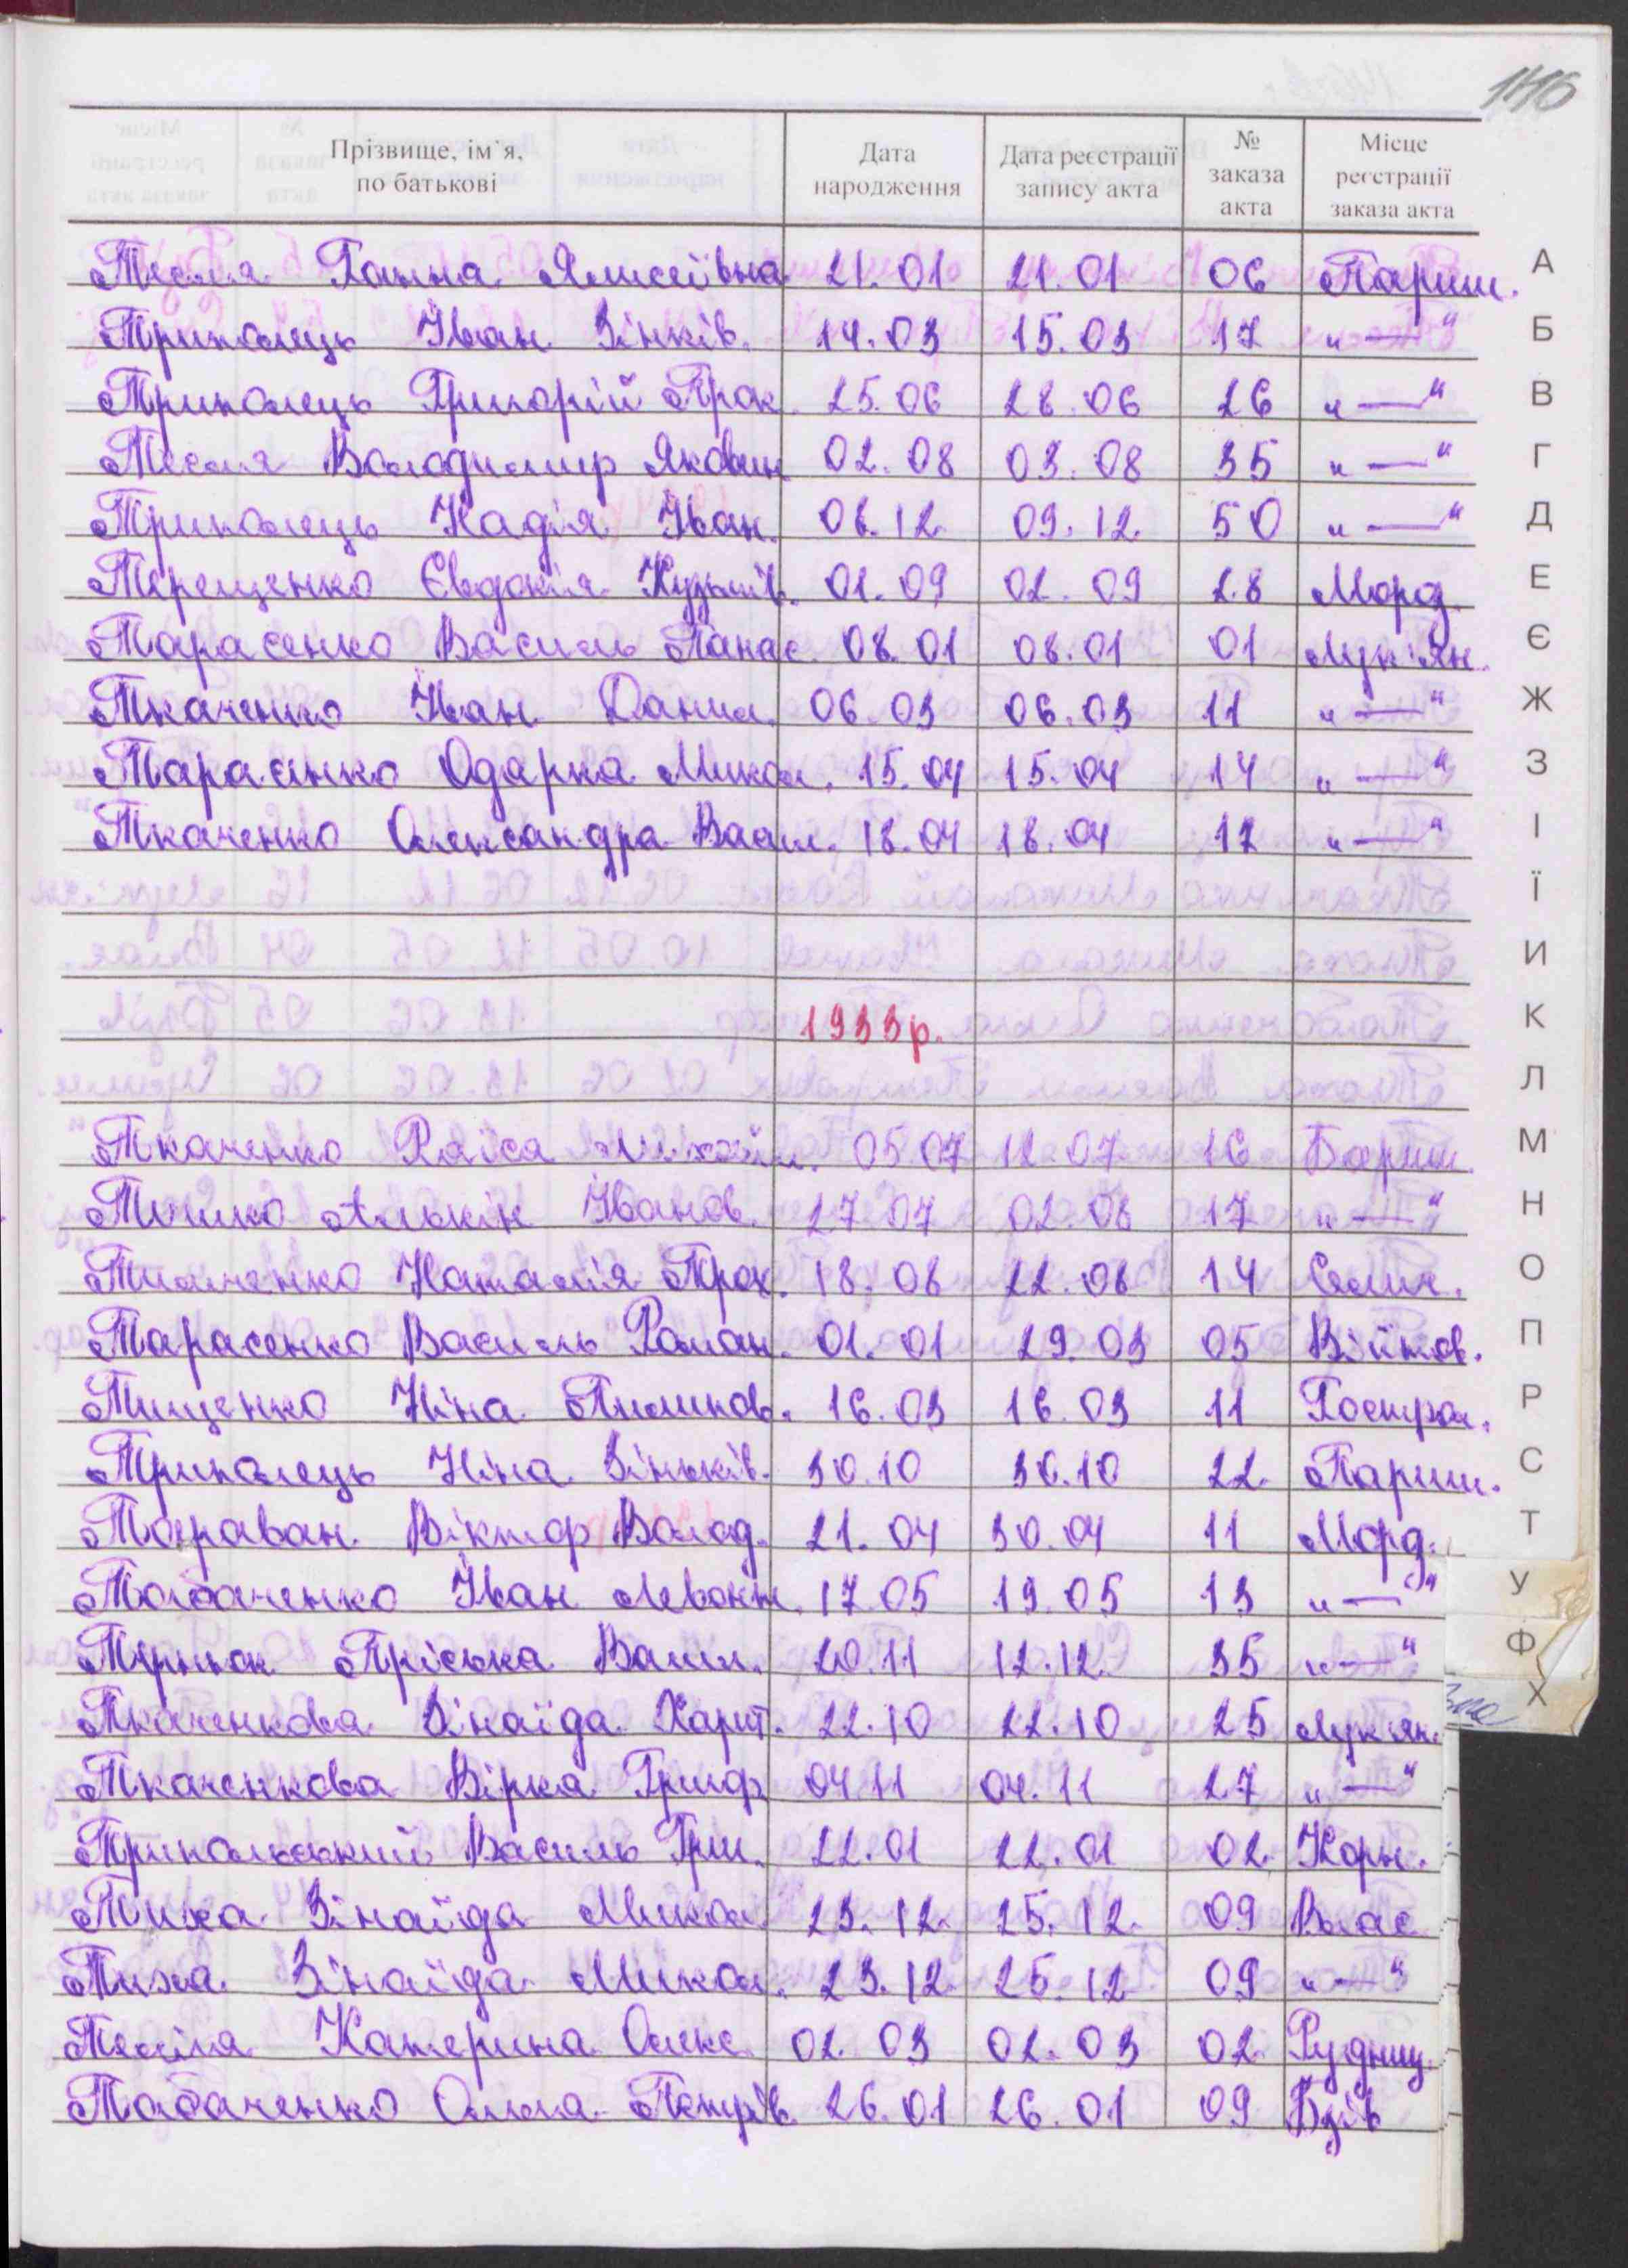 146
Прізвище, ім'я, по батькові Дата народження Дата реєстрації запису акта № заказа акта Місце реєстрації заказа акта
Тесля Ганна Ялисеївна 21.01 21.01 06 Париш.
Триполець Іван Зінків. 14.03 15.03 17 "—"
Триполець Григорій Прок 25.06 28.06 26 "—"
Тесля Володимир Якович 02.08 03.08 35 "—"
Триполець Надія Іван. 08.12 09.12. 50 "—"
Терещенко Євдокія Кузьмів. 01.09 02.09 28 Морд.
Тарасенко Василь Панас. 08.01 08.01 01 Лук'ян.
Ткаченко Іван Данил. 06.03 06.03 11 "—"
Тарасенко Одарка Микол. 15.04 15.04 14 "—"
Ткаченко Олександра Васил. 18.04 18.04 17 "—"
1933р.
Ткаченко Раїса Михайл. 05.07 12.07 16 Париш.
Тишко Іванов. 27.07 02.08 17 "—"
Тимченко Наталія Трох. 18.08 22.08 14 Селич.
Тарасенко Василь Роман. 01.01 29.03 05 Війтов.
Тищенко Ніна Пилипов. 16.03 16.03 11 Гостром.
Триполець Ніна Зіньків. 30.10 30.10 22 Париш.
Віктор Волод. 21.04 30.04 11 Морд.
Табаченко Іван Левонт. 17.05 19.05 13 "—"
Пріська Васил. 20.11 12.12. 35 "—"
Ткаченкова Зінаїда Харит. 22.10 22.10 25 Лук'ян.
Ткаченкова Вірка Григор 04.11 04.11 27 "—"
Трипольський Василь Гри. 22.01 22.01 02. Корн.
Тиха Зінаїда Микол. 23.12. 25.12. 09 Влас
Тиха Зінаїда Микол. 23.12. 25.12 09 "—"
Катерина Олекс. 02.03 02.03 02 Рудниц.
Табаченко Ольга Петрів. 26.01 26.01 09 Бзів
А
Б
В
Г
Д
Е
Є
Ж
З
І
Ї
И
К
Л
М
Н
О
П
Р
С
Т
У
Ф
Х